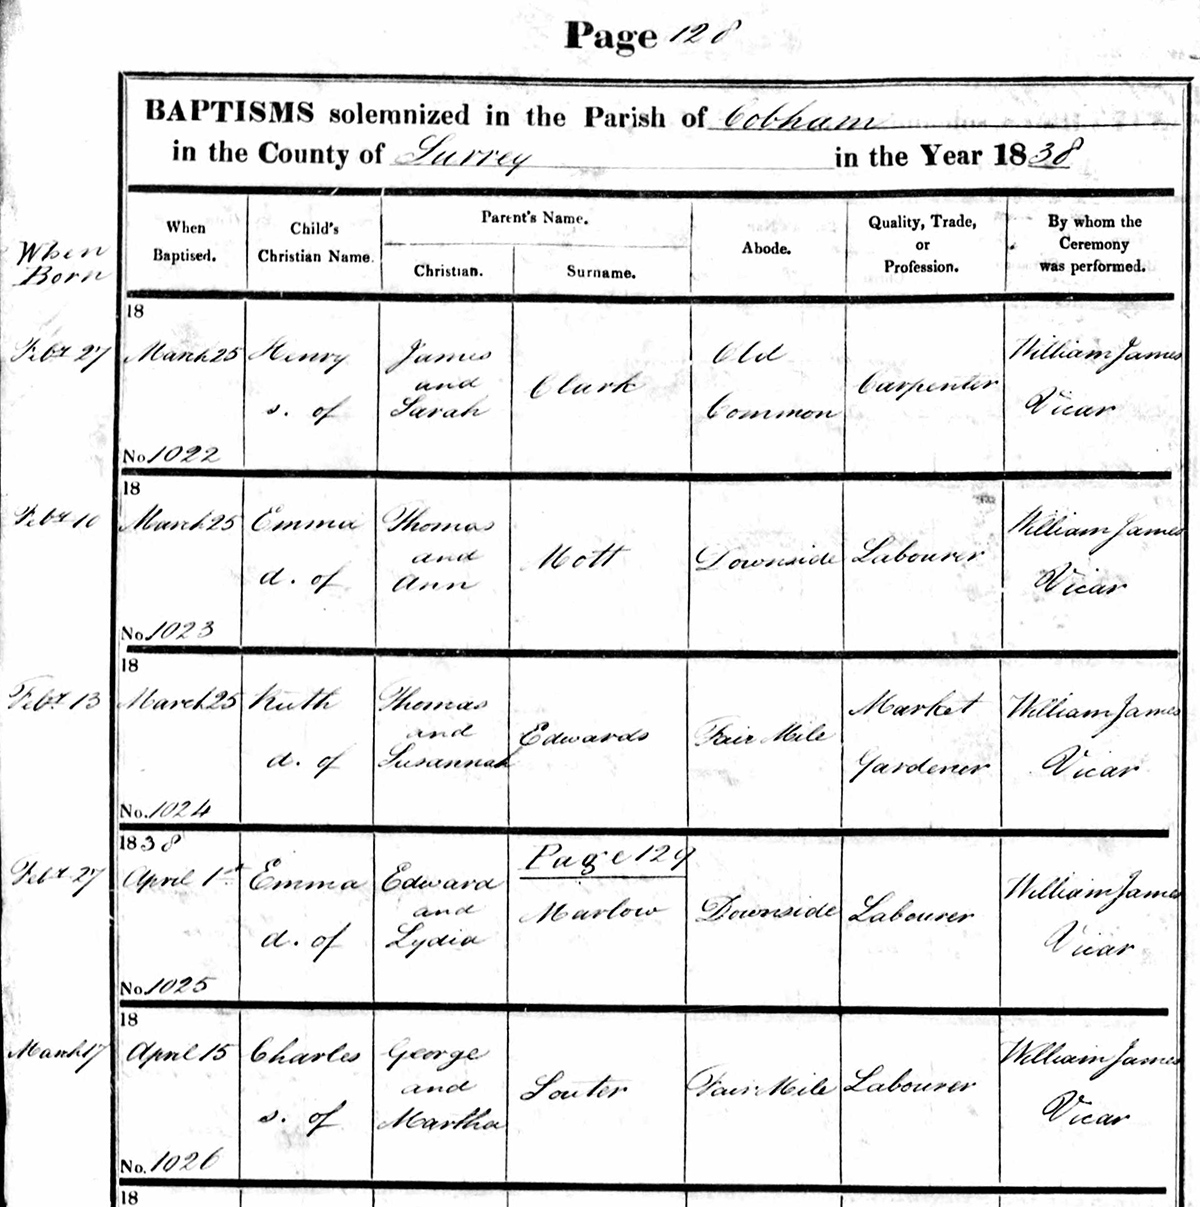 Page 128
BAPTISMS solemnized in the Parish of Cobham
in the County of Surrey in the Year 1838
When Born
When Baptised.
Child's Christian Name.
Parent's Name.
Christian.
Surname.
Abode.
Quality, Trade, or Profession.
By whom the Ceremony was performed.
18
Feby 27 March 25 Henry James William James
and Clark Old Carpenter
s. of Sarah Common Vicar
No. 1022
18
Feby 10 March 25 Emma Thomas William James
and Mott Downside Labourer
d. of Ann Vicar
No. 1023
18
Feby 13 March 25 Ruth Thomas Market William James
and Edwards Fair Mile
d. of Susannah Gardener Vicar
No. 1024
1838
Page 129
Feby 27 April 1st Emma Edward William James
and Marlow Downside Labourer
d. of Lydia Vicar
No. 1025
18
March 17 April 15 Charles George William James
and Souter Fair Mile Labourer
s. of Martha Vicar
No. 1026
18